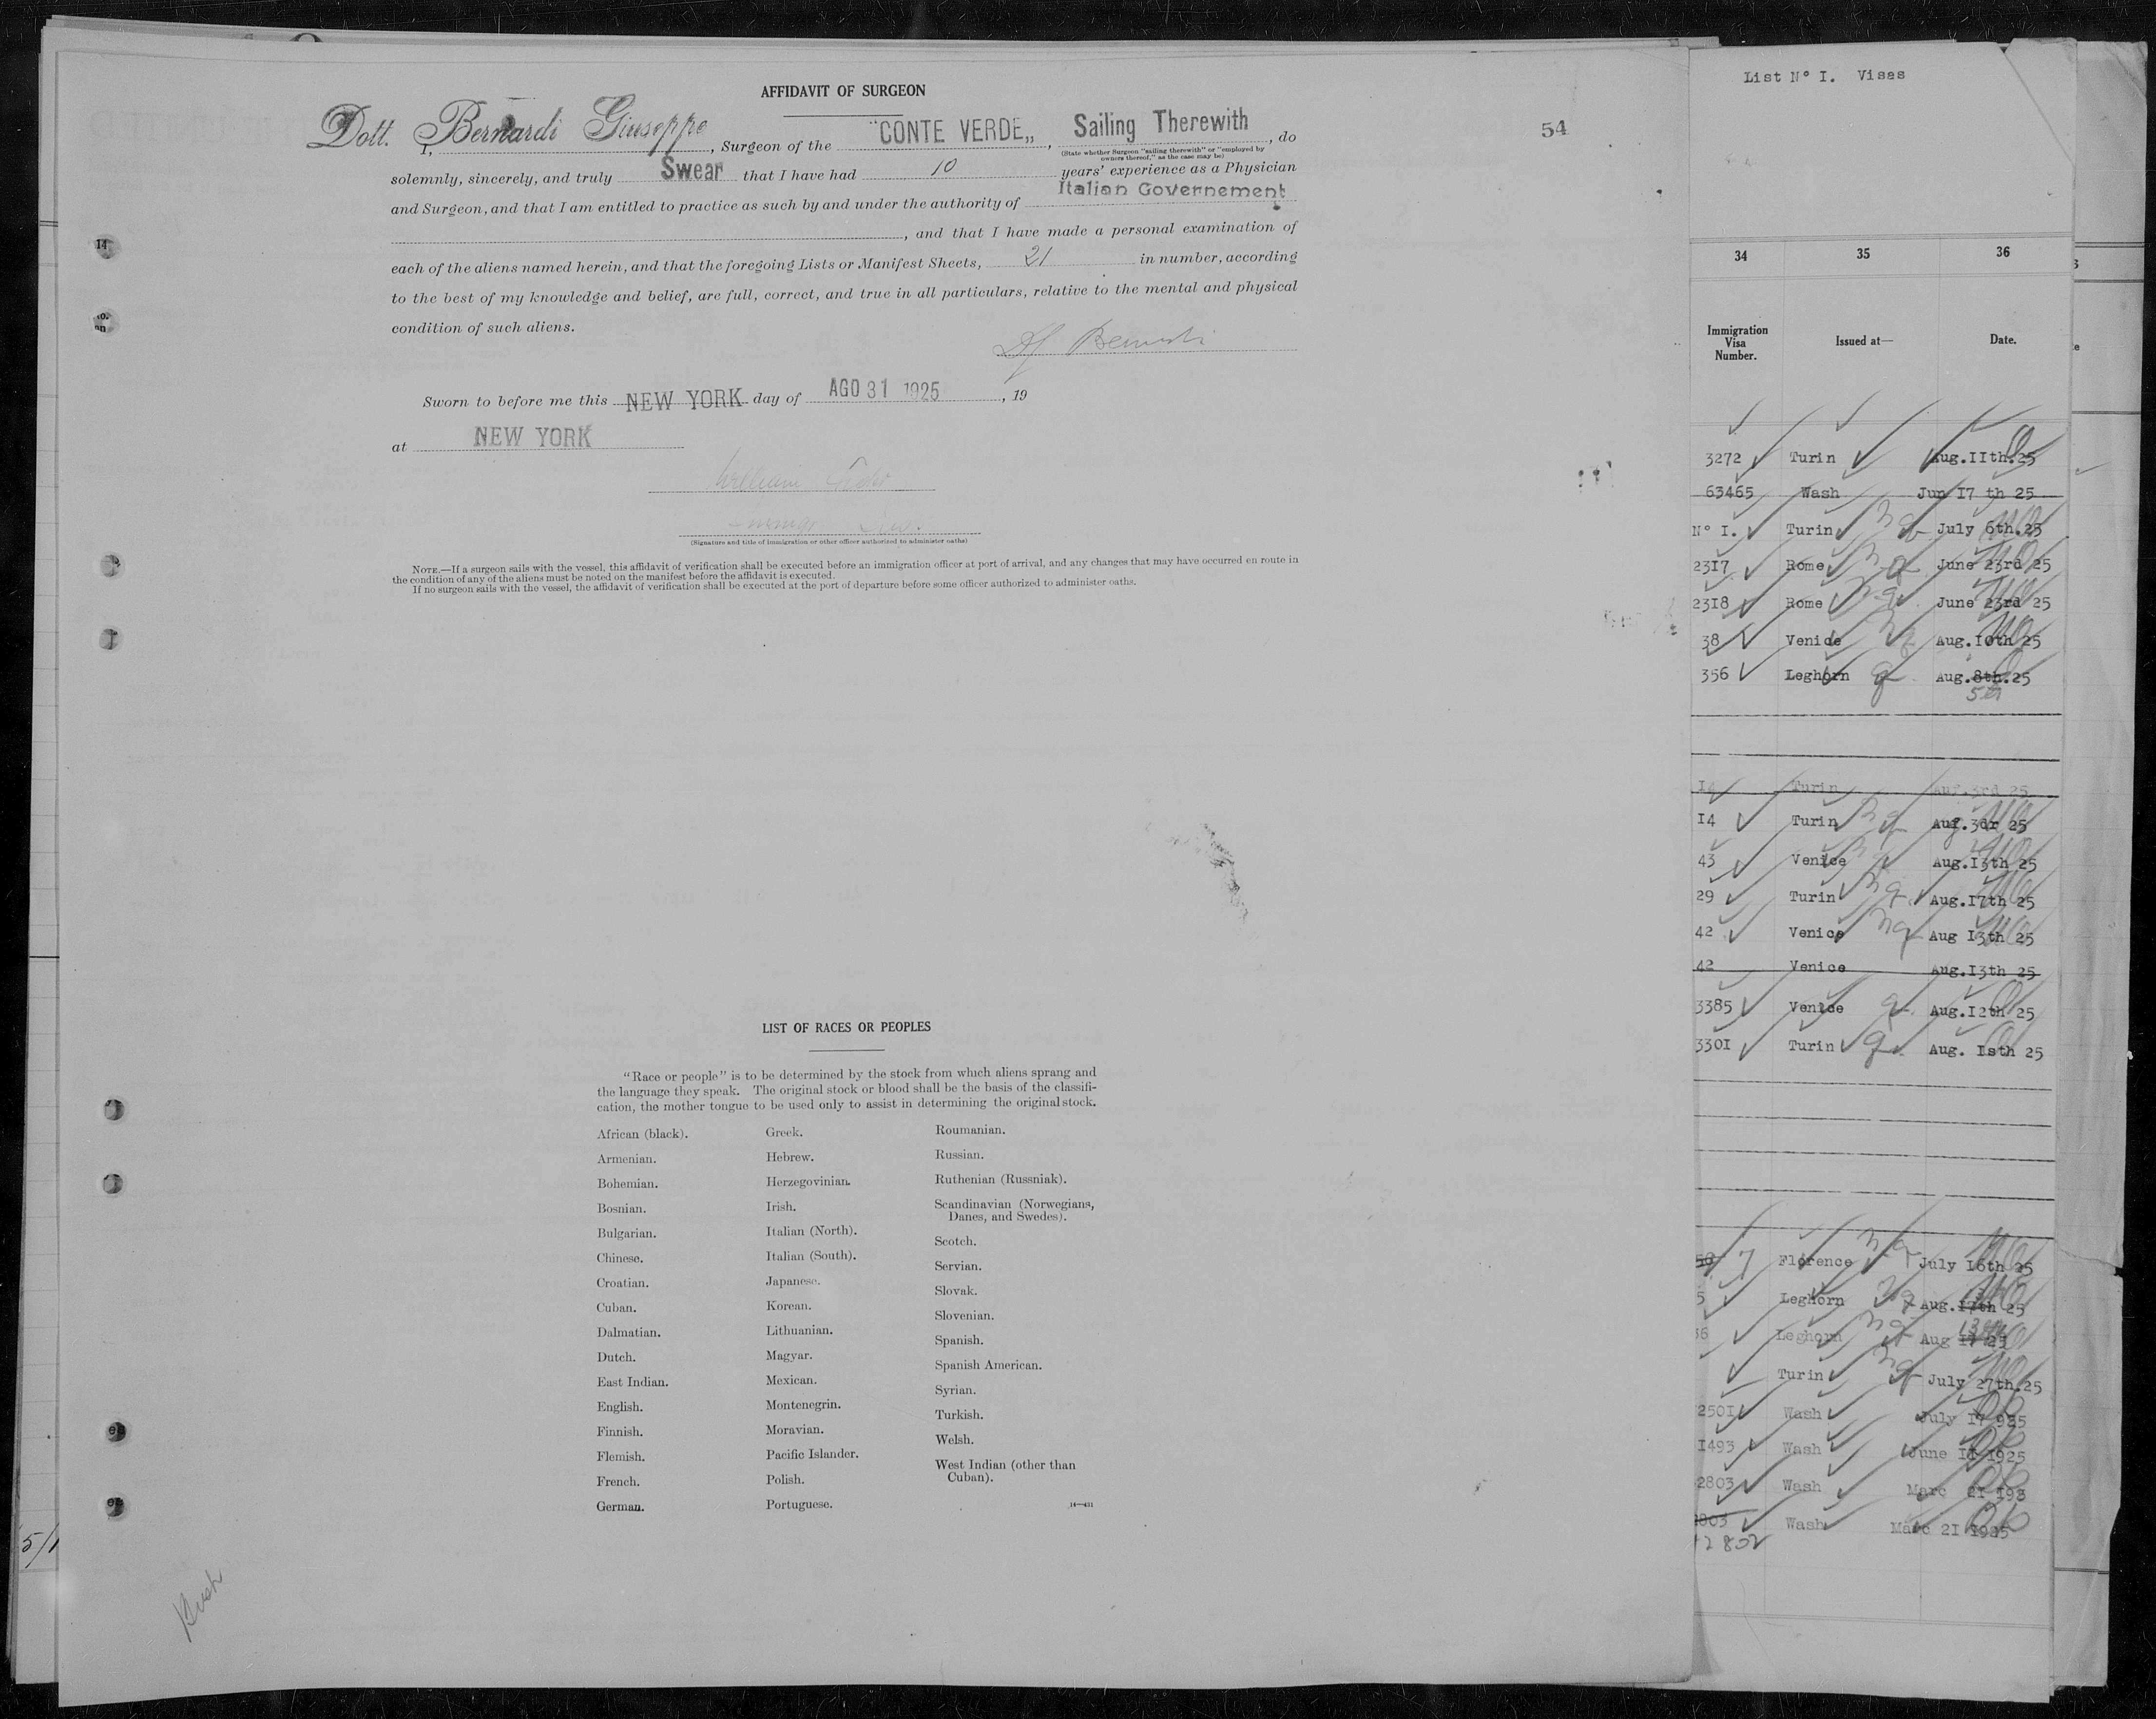 AFFIDAVIT OF SURGEON
54
Dott. Bernardi Giuseppe
I, , Surgeon of the "CONTE VERDE„ , Sailing Therewith , do
(State whether Surgeon "sailing therewith" or "employed by
owners thereof," as the case may be)
solemnly, sincerely, and truly Swear that I have had 10 years' experience as a Physician
and Surgeon, and that I am entitled to practice as such by and under the authority of Italian Governement
, and that I have made a personal examination of
each of the aliens named herein, and that the foregoing Lists or Manifest Sheets, 21 in number, according
to the best of my knowledge and belief, are full, correct, and true in all particulars, relative to the mental and physical
condition of such aliens.
Sworn to before me this NEW YORK day of AGO 31 1925 , 19
at NEW YORK
William
(Signature and title of immigration or other officer authorized to administer oaths)
NOTE.—If a surgeon sails with the vessel, this affidavit of verification shall be executed before an immigration officer at port of arrival, and any changes that may have occurred en route in
the condition of any of the aliens must be noted on the manifest before the affidavit is executed.
If no surgeon sails with the vessel, the affidavit of verification shall be executed at the port of departure before some officer authorized to administer oaths.
LIST OF RACES OR PEOPLES
"Race or people" is to be determined by the stock from which aliens sprang and
the language they speak. The original stock or blood shall be the basis of the classifi-
cation, the mother tongue to be used only to assist in determining the original stock.
African (black).
Armenian.
Bohemian.
Bosnian.
Bulgarian.
Chinese.
Croatian.
Cuban.
Dalmatian.
Dutch.
East Indian.
English.
Finnish.
Flemish.
French.
German.
Greek.
Hebrew.
Herzegovinian.
Irish.
Italian (North).
Italian (South).
Japanese.
Korean.
Lithuanian.
Magyar.
Mexican.
Montenegrin.
Moravian.
Pacific Islander.
Polish.
Portuguese.
Roumanian.
Russian.
Ruthenian (Russniak).
Scandinavian (Norwegians,
Danes, and Swedes).
Scotch.
Servian.
Slovak.
Slovenian.
Spanish.
Spanish American.
Syrian.
Turkish.
Welsh.
West Indian (other than
Cuban).
14—431
List N° I. Visas
34 35 36
Immigration
Visa
Number.
Issued at—
Date.
3272 Turin Aug.IIth.25
63465 Wash Jun I7 th 25
N° I. Turin July 6th.25
23I7 Rome June 23rd 25
23I8 Rome June 23rd 25
38 Venice Aug.I0th 25
356 Leghorn Aug.8th.25
5th
I4 Turin auf.3rd 25
I4 Turin Auf.3dr 25
43 Venice Aug.I3th 25
29 Turin Aug.I7th 25
42 Venice Aug I3th 25
42 Venice Aug.I3th 25
3385 Venice Aug.I2th 25
330I Turin Aug. Isth 25
7 Florence July I6th 25
5 Leghorn Aug.I7th 25
36 Leghorn Aug I7 25
Turin July 27th.25
250I Wash July I7 925
I493 Wash June II 1925
2803 Wash Marc 2I 193
803 Wash Marc 2I 1925
2802
5/1